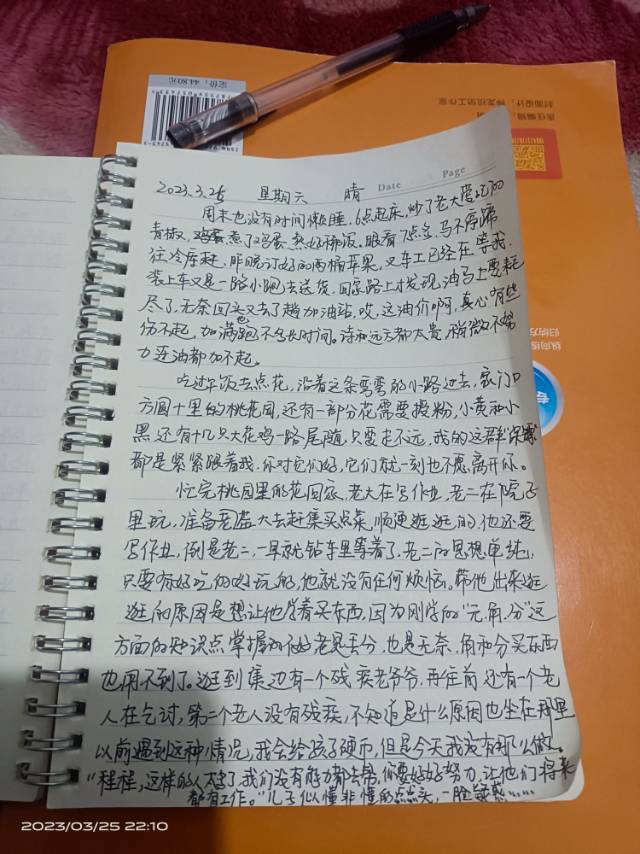 定价：44.80元
责任编辑
封面设计：蜂龙视觉工作室
Date
Page
2023.3.25 星期六 晴
周末也没有时间懒睡，6点起床，炒了老大爱吃的
青椒，煮了鸡蛋，热好稀饭。眼看7点了，马不停蹄
往冷库赶，昨晚订好的两桶苹果，叉车工已经在等我，
装上车又是一路小跑去送货，回家路上才发现，油马上要耗
尽了，无奈回头又去了趟加油站，哎，这油价啊，真心有些
伤不起，加满也跑不多长时间。诗和远方都太贵，稍微不努
力连油都加不起。
吃过午饭去点花，沿着这条弯弯的小路过去，家门口
方圆十里的桃花园，还有一部分花需要授粉，小黄和小
黑，还有十几只大花鸡一路尾随，只要走不远，我的这群保镖
都是紧紧跟着我，你对它们好，它们就一刻也不愿离开你。
忙完桃园里的花回家，老大在写作业，老二在院子
里玩，准备老大去赶集买点菜，顺便逛逛的，他还要
写作业，倒是老二，一早就钻车里等着了，老二的思想单纯，
只要有好吃的好玩的，他就没有任何烦恼。带他出来逛
逛的原因是想让他学着买东西，因为刚学的"元、角、分"这
方面的知识点掌握的不好老是丢分，也是无奈，角和分买东西
也用不到了。逛到集边有一个残疾老爷爷，再往前还有一个老
人在乞讨，第二个老人没有残疾，不知道是什么原因也坐在那里
以前遇到这种情况，我会给孩子硬币，但是今天我没有那么做。
"程程，这样的人太多了，我们没有能力都去帮，你要好好努力，让他们将来
都有工作。"儿子似懂非懂的点点头，一脸疑惑……
2023/03/25 22:10